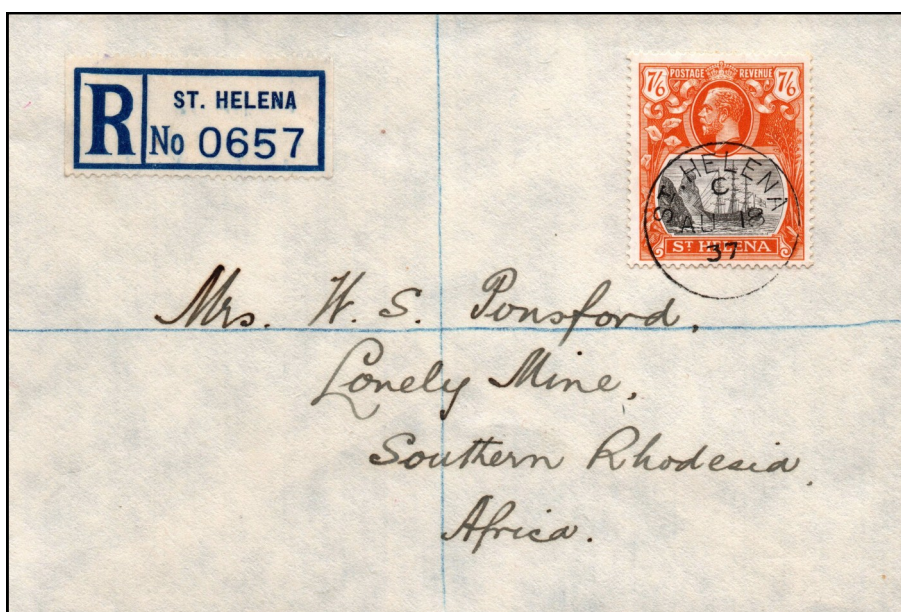 R ST. HELENA
No 0657
POSTAGE REVENUE
7/6 7/6
ST. HELENA
C
AU 18
37
ST HELENA
Mrs. W. S. Ponsford,
Lonely Mine,
Southern Rhodesia,
Africa.